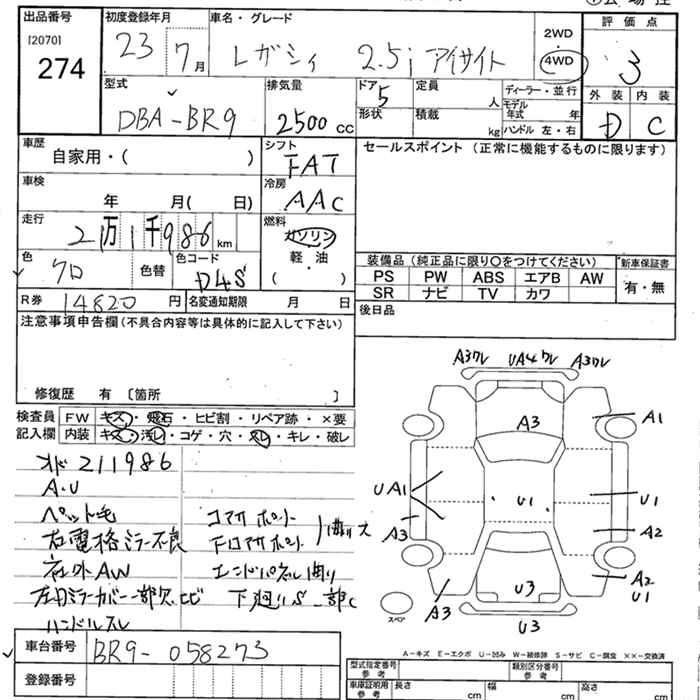 出品番号 初度登録年月 車名・グレード 評価点
[2070]
274
23 7月 レガシィ 2.5i アイサイト 2WD 4WD 3
型式 排気量 ドア 定員 ディーラー・並行 外装 内装
DBA-BR9 2500cc 5 人 モデル年式 年 D C
形状 積載 kg ハンドル 左・右
車歴 シフト セールスポイント (正常に機能するものに限ります)
自家用・( ) FAT
車検 冷房
年 月( 日) AAC
走行 燃料
21万1千986km ガソリン
軽・油
( )
色 色コード 装備品(純正品に限り○をつけてください) 新車保証書
クロ 色替 D4S PS PW ABS エアB AW 有・無
SR ナビ TV カワ
R券 14820円 名変通知期限 月 日 後日品
注意事項申告欄(不具合内容等は具体的に記入して下さい)
修復歴 有 〔箇所 〕
検査員 FW キズ・飛石・ヒビ割・リペア跡・×要
記入欄 内装 キズ・汚レ・コゲ・穴・スレ・キレ・破レ
A3ワレ UA4ワレ A3ワレ
A3 A1
UA1 A3 U1 U1 A2
A3 U3 A2 U1
U3
スペア
オド 211986
A・U
ペット毛
右電格ミラー不良
社外AW
左ドアミラーカバー一部欠 ヒビ
ハンドルスレ
コアサポート
下ロアサポート
エンドパネル曲り
下廻りS 一部C
A-キズ E-エクボ U-凹み W-補修跡 S-サビ C-腐食 ××-交換済
車台番号 BR9-058273
登録番号
型式指定番号 参考 類別区分番号 参考
車庫証明用 参考 長さ cm 幅 cm 高さ cm